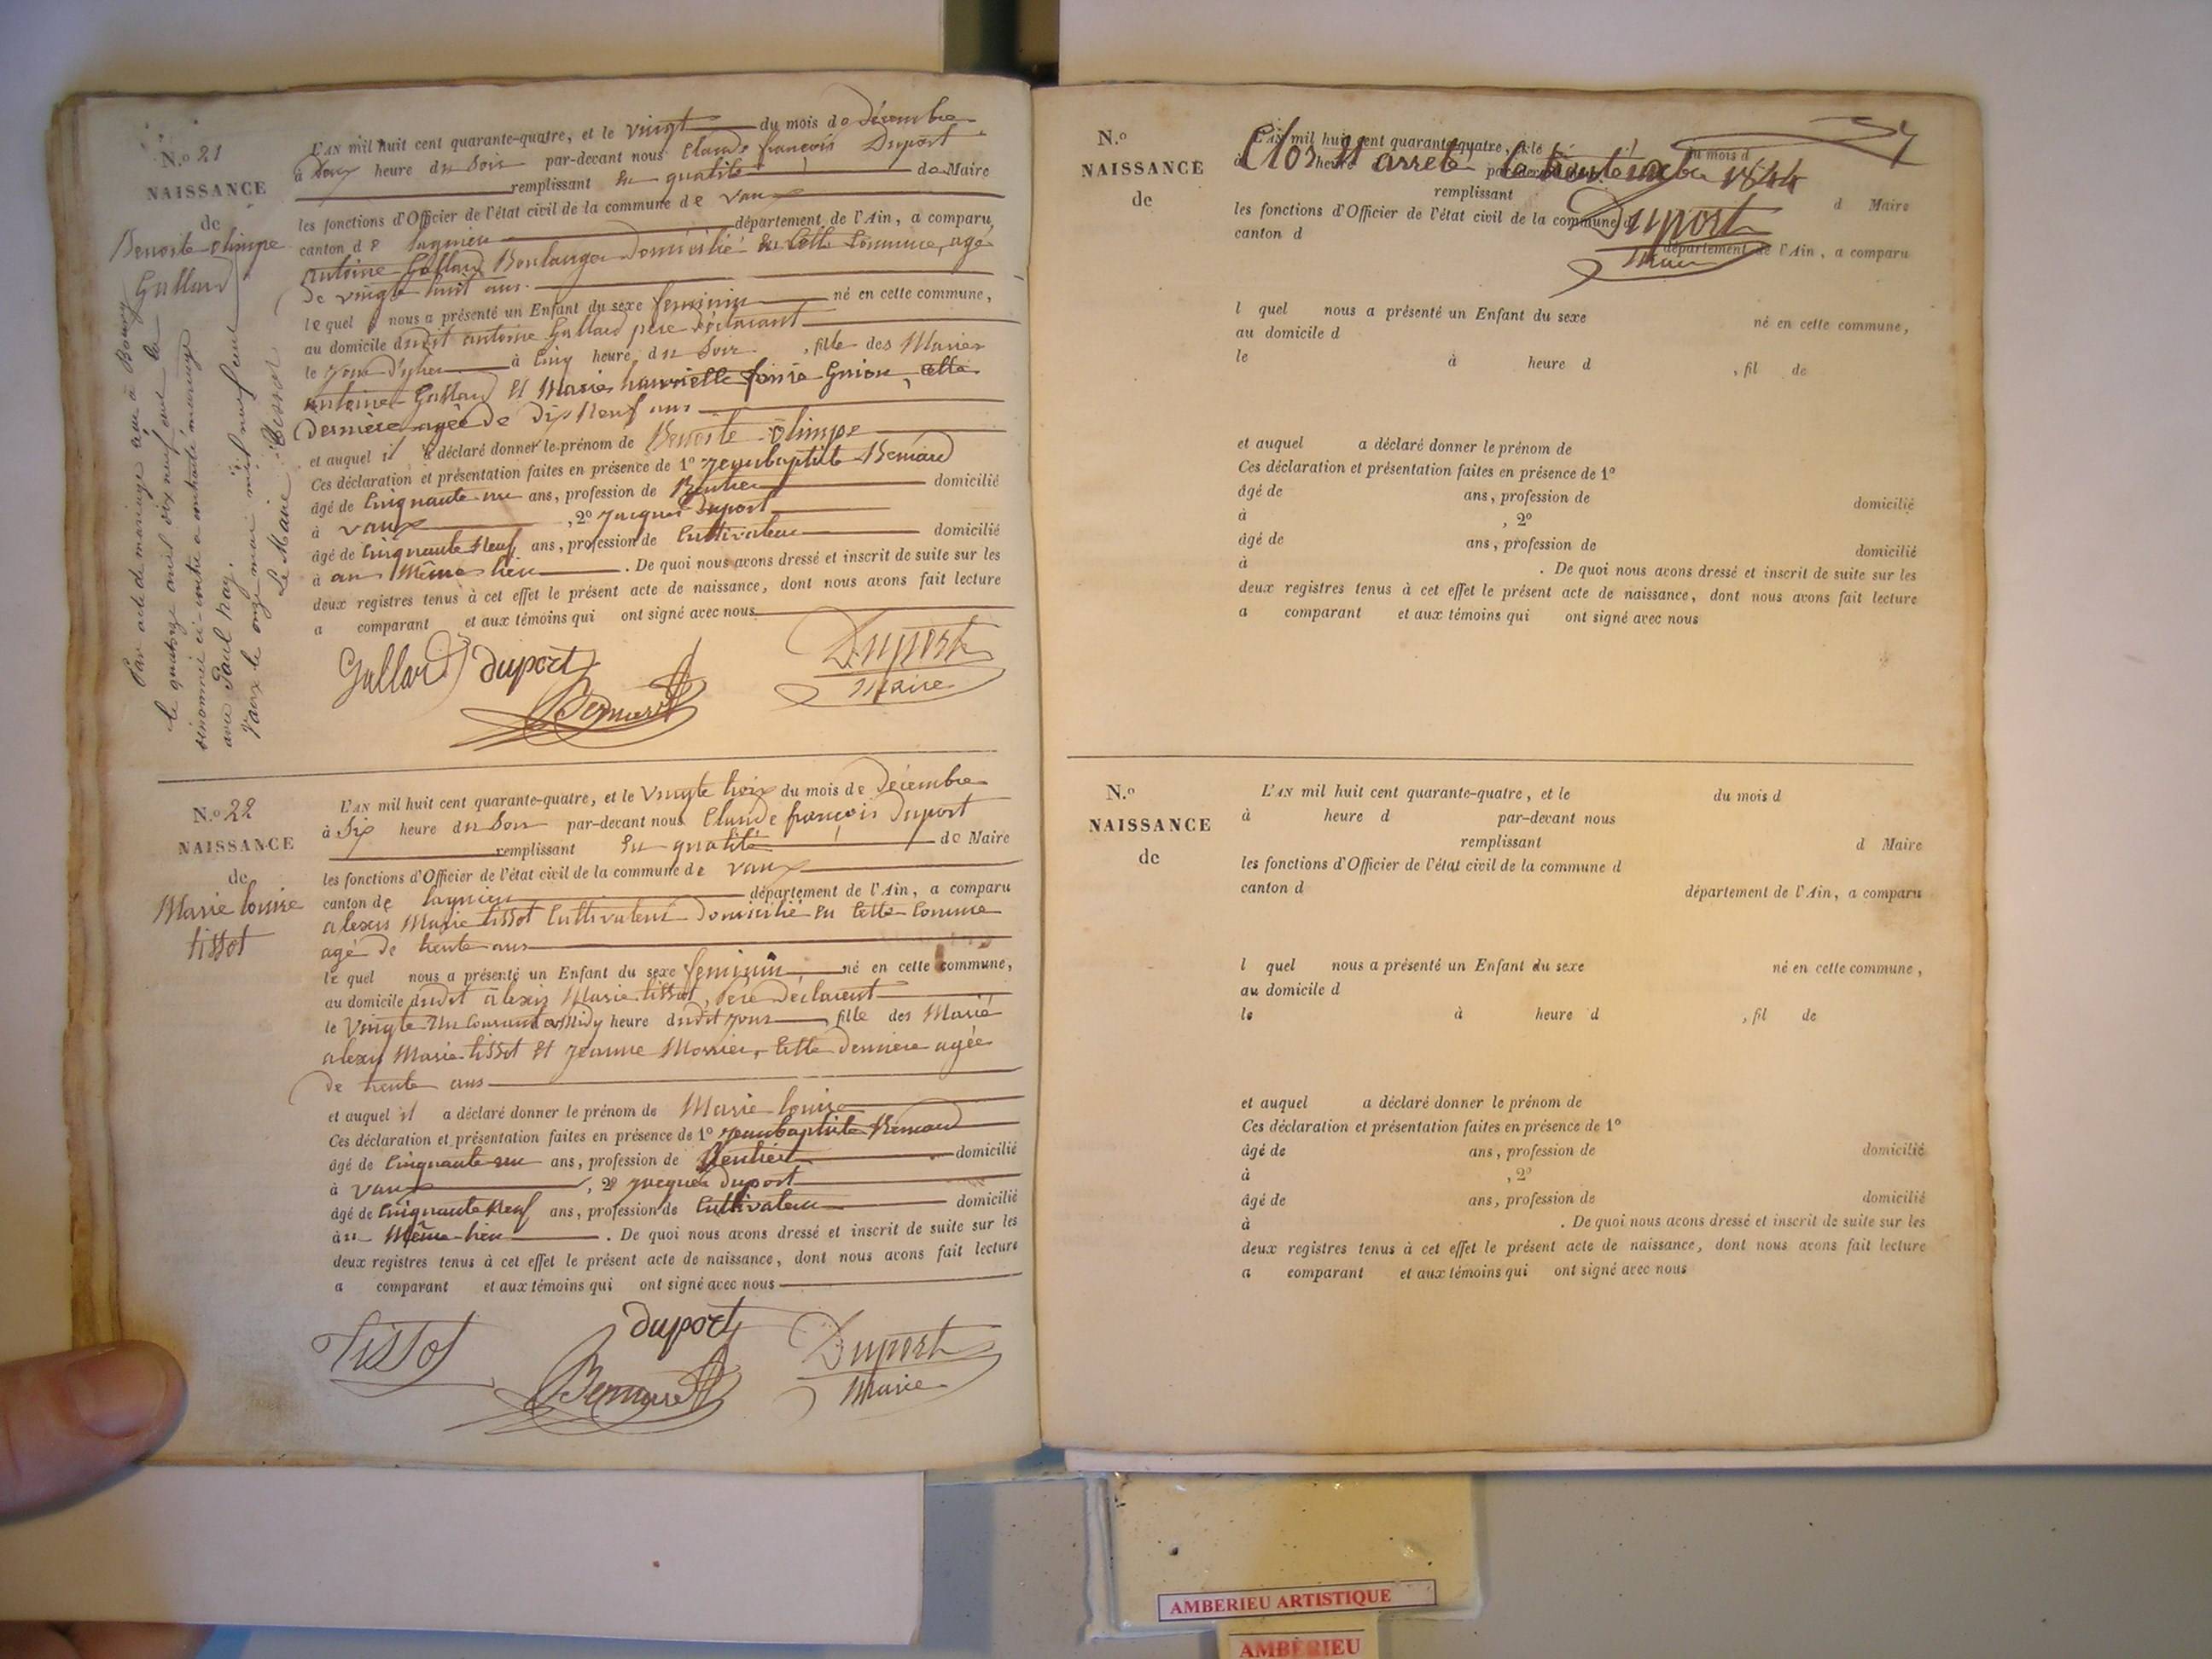 N.o 21
NAISSANCE
de
Benoite olimpe
Gallard
Par acte de mariage reçu à Bourg
le quatorze avril dix neuf cent
dénommée ci-contre a contracté mariage
avec Paul
Vaux le onze mai mil neuf cent
Le Maire : Tissot
L'AN mil huit cent quarante-quatre, et le vingt du mois de décembre
à heure du Soir par-devant nous Claude françois Duport
remplissant en qualité de Maire
les fonctions d'Officier de l'état civil de la commune de Vaux
canton de Lagnieu département de l'Ain, a comparu
antoine Gallard Boulanger domicilié en cette Commune, agé
de vingt huit ans.
le quel nous a présenté un Enfant du sexe feminin né en cette commune,
au domicile dudit antoine Gallard père déclarant
le jour d'hier à Cinq heure du Soir, fille des Mariés
antoine Gallard et Marie Guion, cette
dernière agée de dix neuf ans
et auquel il a déclaré donner le prénom de Benoite olimpe
Ces déclaration et présentation faites en présence de 1o jeanbaptiste Bernard
âgé de Cinquante un ans, profession de Rentier domicilié
à Vaux, 2o jacques Duport
âgé de Cinquante Neuf ans, profession de Cultivateur domicilié
à au Même lieu. De quoi nous avons dressé et inscrit de suite sur les
deux registres tenus à cet effet le présent acte de naissance, dont nous avons fait lecture
a comparant et aux témoins qui ont signé avec nous
Gallard duport Duport
Bernard Maire
N.o 22
NAISSANCE
de
Marie louise
tissot
L'AN mil huit cent quarante-quatre, et le Vingte trois du mois de décembre
à Six heure du Soir par-devant nous Claude françois Duport
remplissant en qualité de Maire
les fonctions d'Officier de l'état civil de la commune de Vaux
canton de lagnieu département de l'Ain, a comparu
alexis Marie tissot Cultivateur domicilié en Cette Commune
agé de trente ans
le quel nous a présenté un Enfant du sexe feminin né en cette commune,
au domicile dudit alexis Marie tissot, père déclarent
le Vingte un Courant a Midy heure dudit jour fille des Marié
alexis Marie tissot et jeanne Cette dernière agée
de trente ans
et auquel il a déclaré donner le prénom de Marie louise
Ces déclaration et présentation faites en présence de 1o jeanbaptiste Bernard
âgé de Cinquante un ans, profession de Rentier domicilié
à Vaux, 2o jacques Duport
âgé de Cinquante Neuf ans, profession de Cultivateur domicilié
à au Même lieu. De quoi nous avons dressé et inscrit de suite sur les
deux registres tenus à cet effet le présent acte de naissance, dont nous avons fait lecture
a comparant et aux témoins qui ont signé avec nous
duport
Tissot Duport
Bernard Maire
N.o
NAISSANCE
de
L'AN mil huit cent quarante-quatre, et le du mois d
à heure d par-devant nous
Clos et arreté le 1844
remplissant d Maire
les fonctions d'Officier de l'état civil de la commune d
Duport
canton d département de l'Ain, a comparu
Maire
l quel nous a présenté un Enfant du sexe né en cette commune,
au domicile d
le à heure d, fil de
et auquel a déclaré donner le prénom de
Ces déclaration et présentation faites en présence de 1o
âgé de ans, profession de domicilié
à, 2o
âgé de ans, profession de domicilié
à. De quoi nous avons dressé et inscrit de suite sur les
deux registres tenus à cet effet le présent acte de naissance, dont nous avons fait lecture
a comparant et aux témoins qui ont signé avec nous
N.o
NAISSANCE
de
L'AN mil huit cent quarante-quatre, et le du mois d
à heure d par-devant nous
remplissant d Maire
les fonctions d'Officier de l'état civil de la commune d
canton d département de l'Ain, a comparu
l quel nous a présenté un Enfant du sexe né en cette commune,
au domicile d
le à heure d, fil de
et auquel a déclaré donner le prénom de
Ces déclaration et présentation faites en présence de 1o
âgé de ans, profession de domicilié
à, 2o
âgé de ans, profession de domicilié
à. De quoi nous avons dressé et inscrit de suite sur les
deux registres tenus à cet effet le présent acte de naissance, dont nous avons fait lecture
a comparant et aux témoins qui ont signé avec nous
AMBERIEU ARTISTIQUE
AMBERIEU